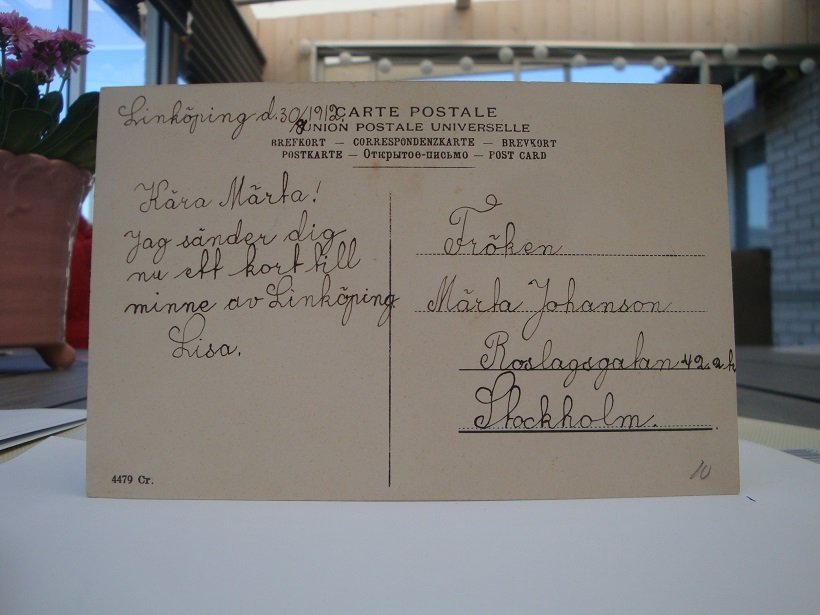 Linköping d. 30/8 1912.
CARTE POSTALE
UNION POSTALE UNIVERSELLE
BREFKORT — CORRESPONDENZKARTE — BREVKORT
POSTKARTE — Открытое-письмо — POST CARD
Kära Märta!
Jag sänder dig
nu ett kort till
minne av Linköping.
Lisa.
Fröken
Märta Johanson
Roslagsgatan 42.
Stockholm.
4479 Cr.
10